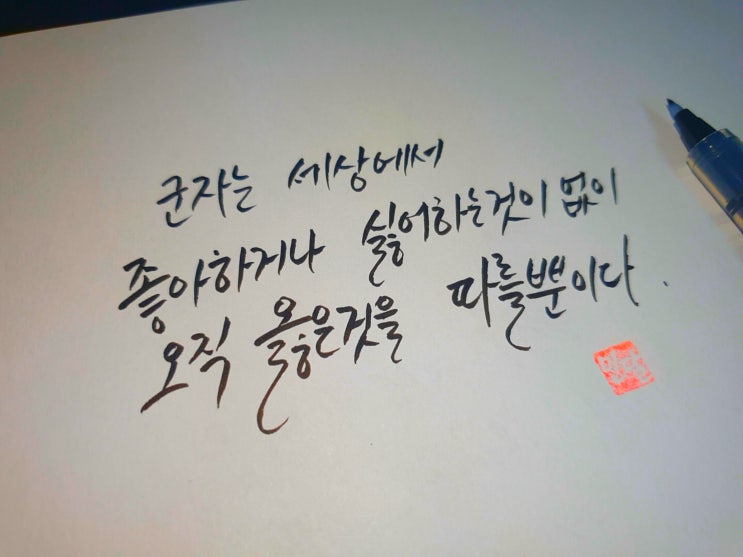 군자는 세상에서
좋아하거나 싫어하는것이 없이
오직 옳은것을 따를뿐이다.